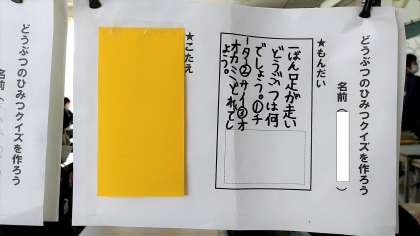 どうぶつのひみつクイズを作ろう
名前（　　　　　）
★もんだい
一ばん足が走い
どうぶつは何
でしょう。①チ
ーター②サイ③オ
オカミどれでし
ょう。
★こたえ
どうぶつのひみつクイズを作ろう
名前（